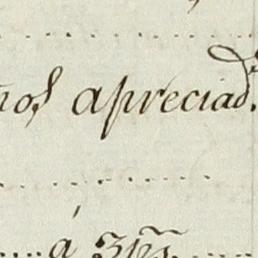 ños apreciad.
á 3 p.s